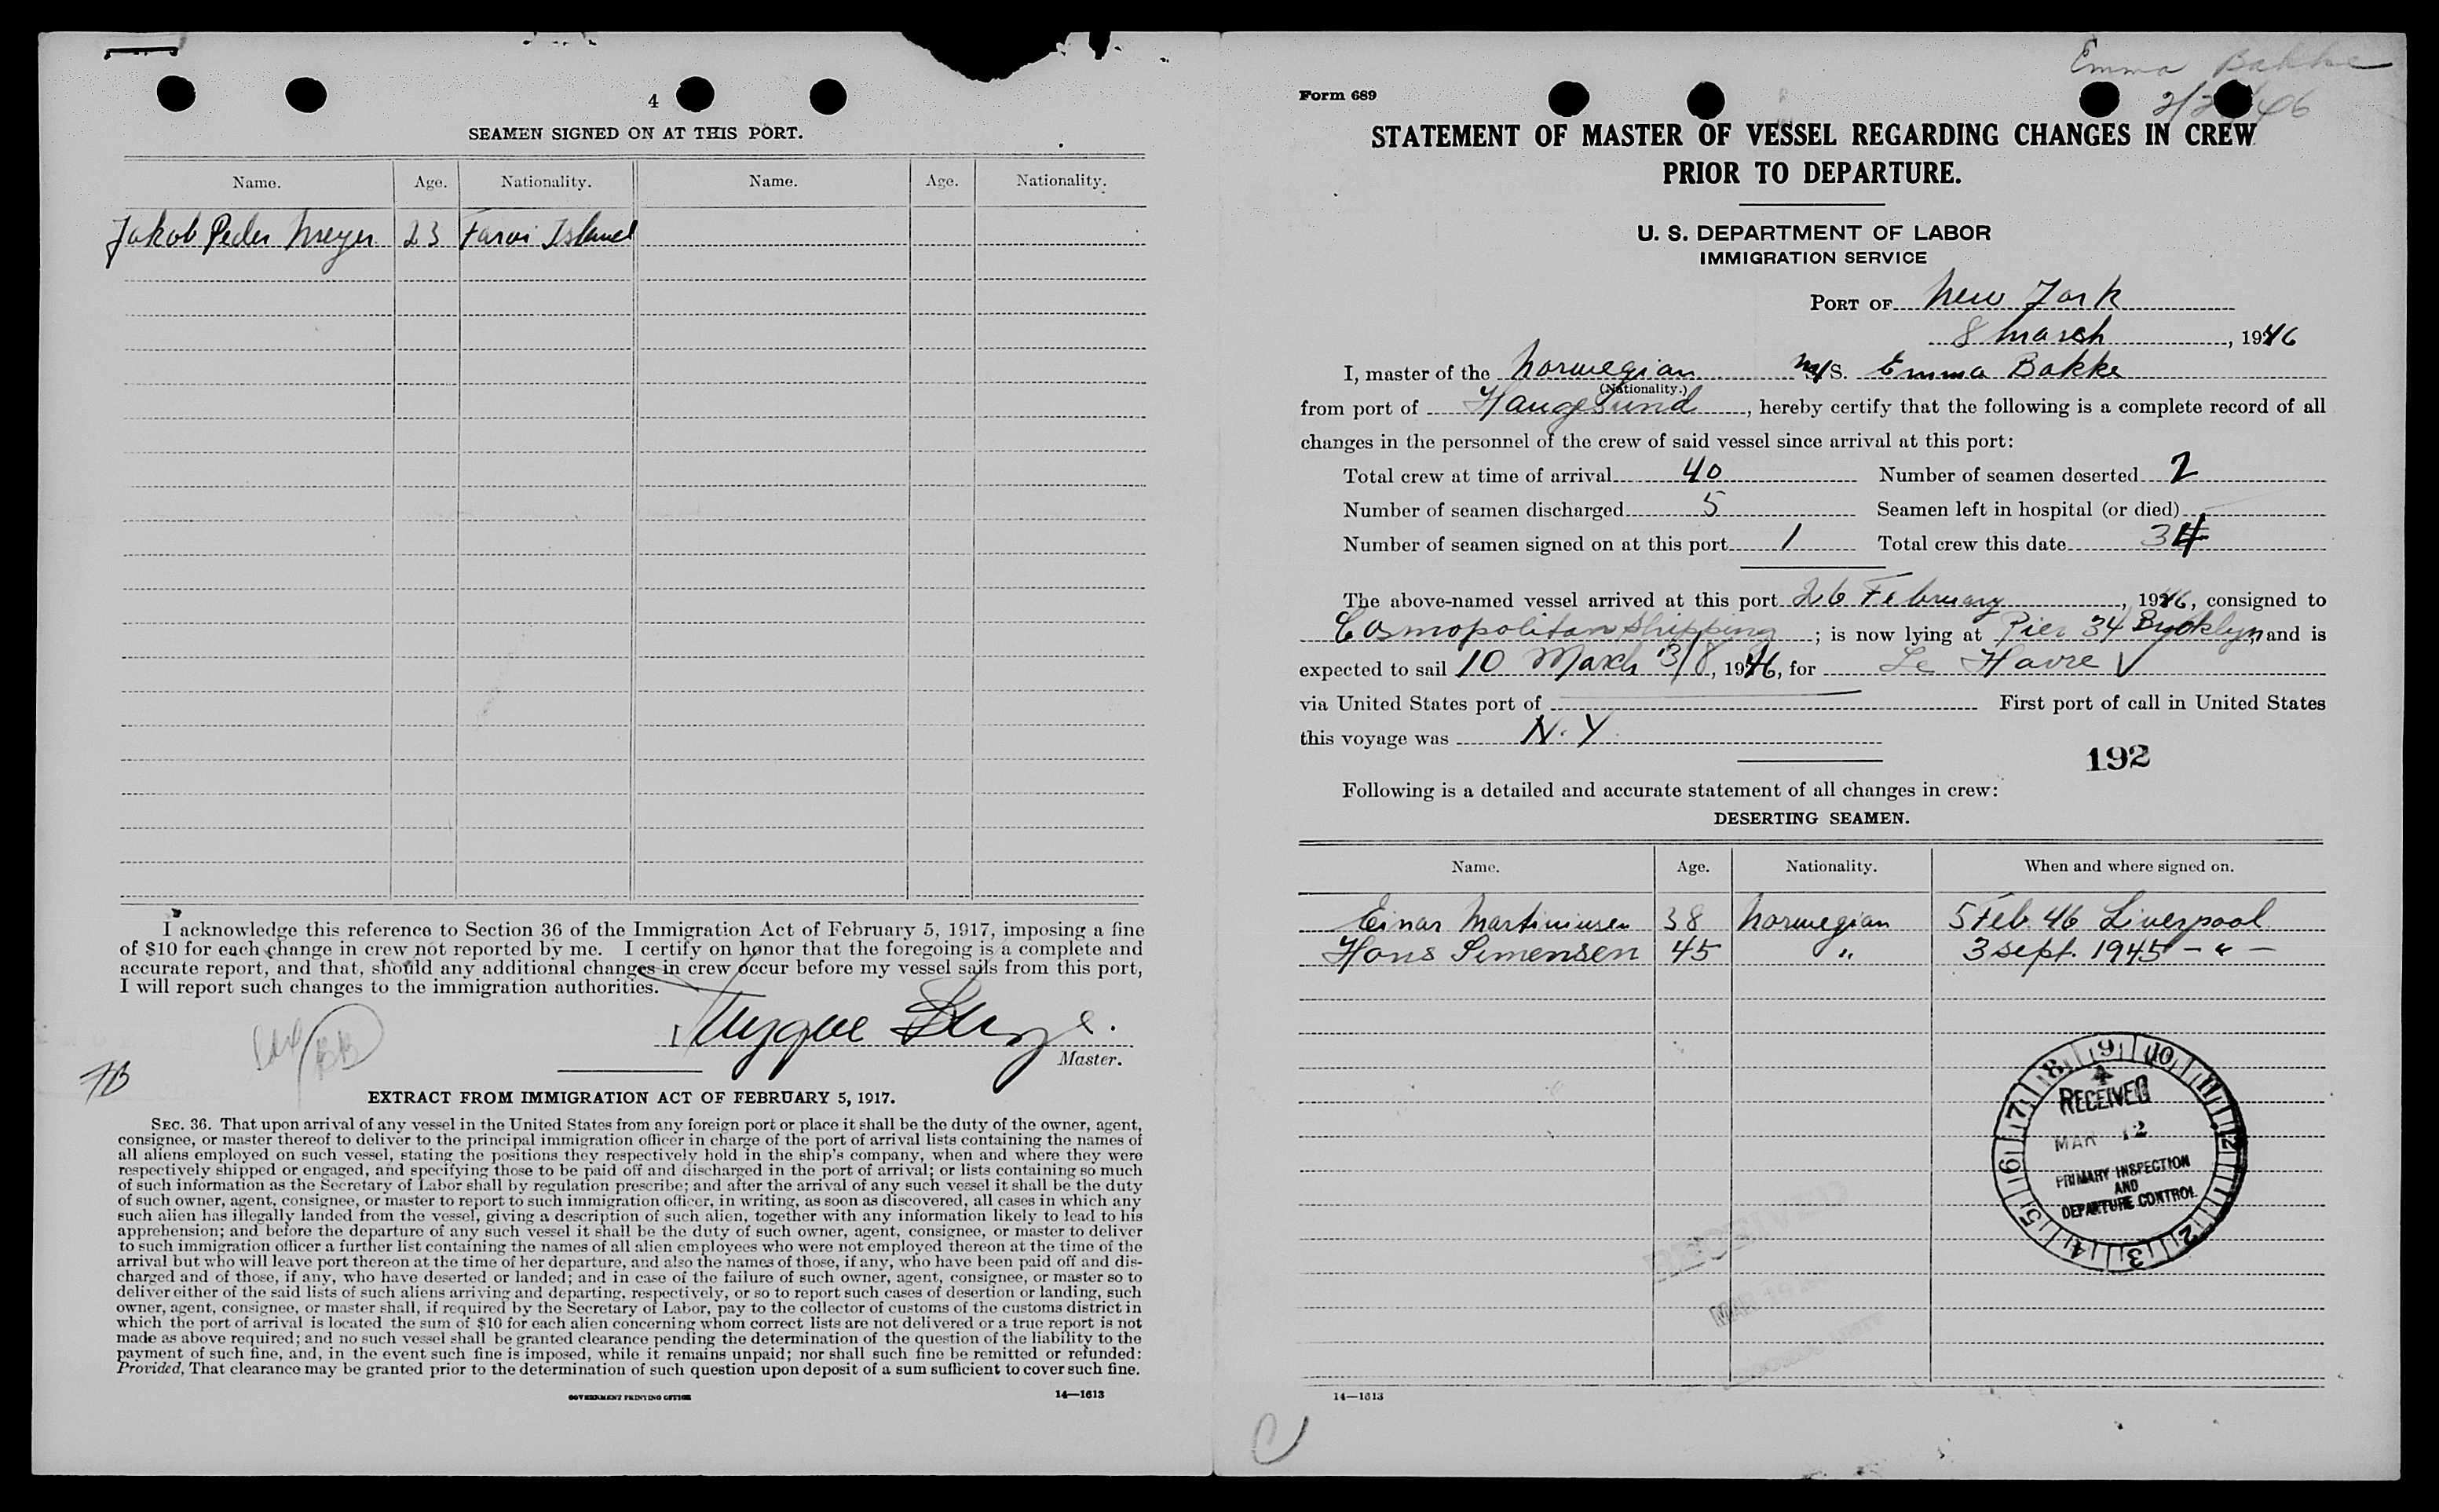 4
SEAMEN SIGNED ON AT THIS PORT.
Name. Age. Nationality. Name. Age. Nationality.
Jakob Peder Meyer 23 Faroi Island
I acknowledge this reference to Section 36 of the Immigration Act of February 5, 1917, imposing a fine
of $10 for each change in crew not reported by me. I certify on honor that the foregoing is a complete and
accurate report, and that, should any additional changes in crew occur before my vessel sails from this port,
I will report such changes to the immigration authorities.
Master.
EXTRACT FROM IMMIGRATION ACT OF FEBRUARY 5, 1917.
SEC. 36. That upon arrival of any vessel in the United States from any foreign port or place it shall be the duty of the owner, agent,
consignee, or master thereof to deliver to the principal immigration officer in charge of the port of arrival lists containing the names of
all aliens employed on such vessel, stating the positions they respectively hold in the ship's company, when and where they were
respectively shipped or engaged, and specifying those to be paid off and discharged in the port of arrival; or lists containing so much
of such information as the Secretary of Labor shall by regulation prescribe; and after the arrival of any such vessel it shall be the duty
of such owner, agent, consignee, or master to report to such immigration officer, in writing, as soon as discovered, all cases in which any
such alien has illegally landed from the vessel, giving a description of such alien, together with any information likely to lead to his
apprehension; and before the departure of any such vessel it shall be the duty of such owner, agent, consignee, or master to deliver
to such immigration officer a further list containing the names of all alien employees who were not employed thereon at the time of the
arrival but who will leave port thereon at the time of her departure, and also the names of those, if any, who have been paid off and dis-
charged and of those, if any, who have deserted or landed; and in case of the failure of such owner, agent, consignee, or master so to
deliver either of the said lists of such aliens arriving and departing, respectively, or so to report such cases of desertion or landing, such
owner, agent, consignee, or master shall, if required by the Secretary of Labor, pay to the collector of customs of the customs district in
which the port of arrival is located the sum of $10 for each alien concerning whom correct lists are not delivered or a true report is not
made as above required; and no such vessel shall be granted clearance pending the determination of the question of the liability to the
payment of such fine, and, in the event such fine is imposed, while it remains unpaid; nor shall such fine be remitted or refunded:
Provided, That clearance may be granted prior to the determination of such question upon deposit of a sum sufficient to cover such fine.
GOVERNMENT PRINTING OFFICE 14—1613
Emma Bakke
Form 689
STATEMENT OF MASTER OF VESSEL REGARDING CHANGES IN CREW
PRIOR TO DEPARTURE.
U. S. DEPARTMENT OF LABOR
IMMIGRATION SERVICE
PORT OF New York
8 March, 1946
I, master of the Norwegian M/S. Emma Bakke
(Nationality.)
from port of Haugesund, hereby certify that the following is a complete record of all
changes in the personnel of the crew of said vessel since arrival at this port:
Total crew at time of arrival 40 Number of seamen deserted 2
Number of seamen discharged 5 Seamen left in hospital (or died)
Number of seamen signed on at this port 1 Total crew this date 34
The above-named vessel arrived at this port 26 February, 1946, consigned to
Cosmopolitan Shipping; is now lying at Pier 34 Brooklyn, and is
expected to sail 10 March 3/8, 1946, for Le Havre
via United States port of First port of call in United States
this voyage was N.Y.
192
Following is a detailed and accurate statement of all changes in crew:
DESERTING SEAMEN.
Name. Age. Nationality. When and where signed on.
Einar Martiniusen 38 Norwegian 5 Feb. 46 Liverpool
Hans Simensen 45 " 3 sept. 1945 - " -
9 10 11 12 1 2 3 4 5 6 7 8
RECEIVED
MAR 12
PRIMARY INSPECTION
AND
DEPARTURE CONTROL
RECEIVED
14—1613